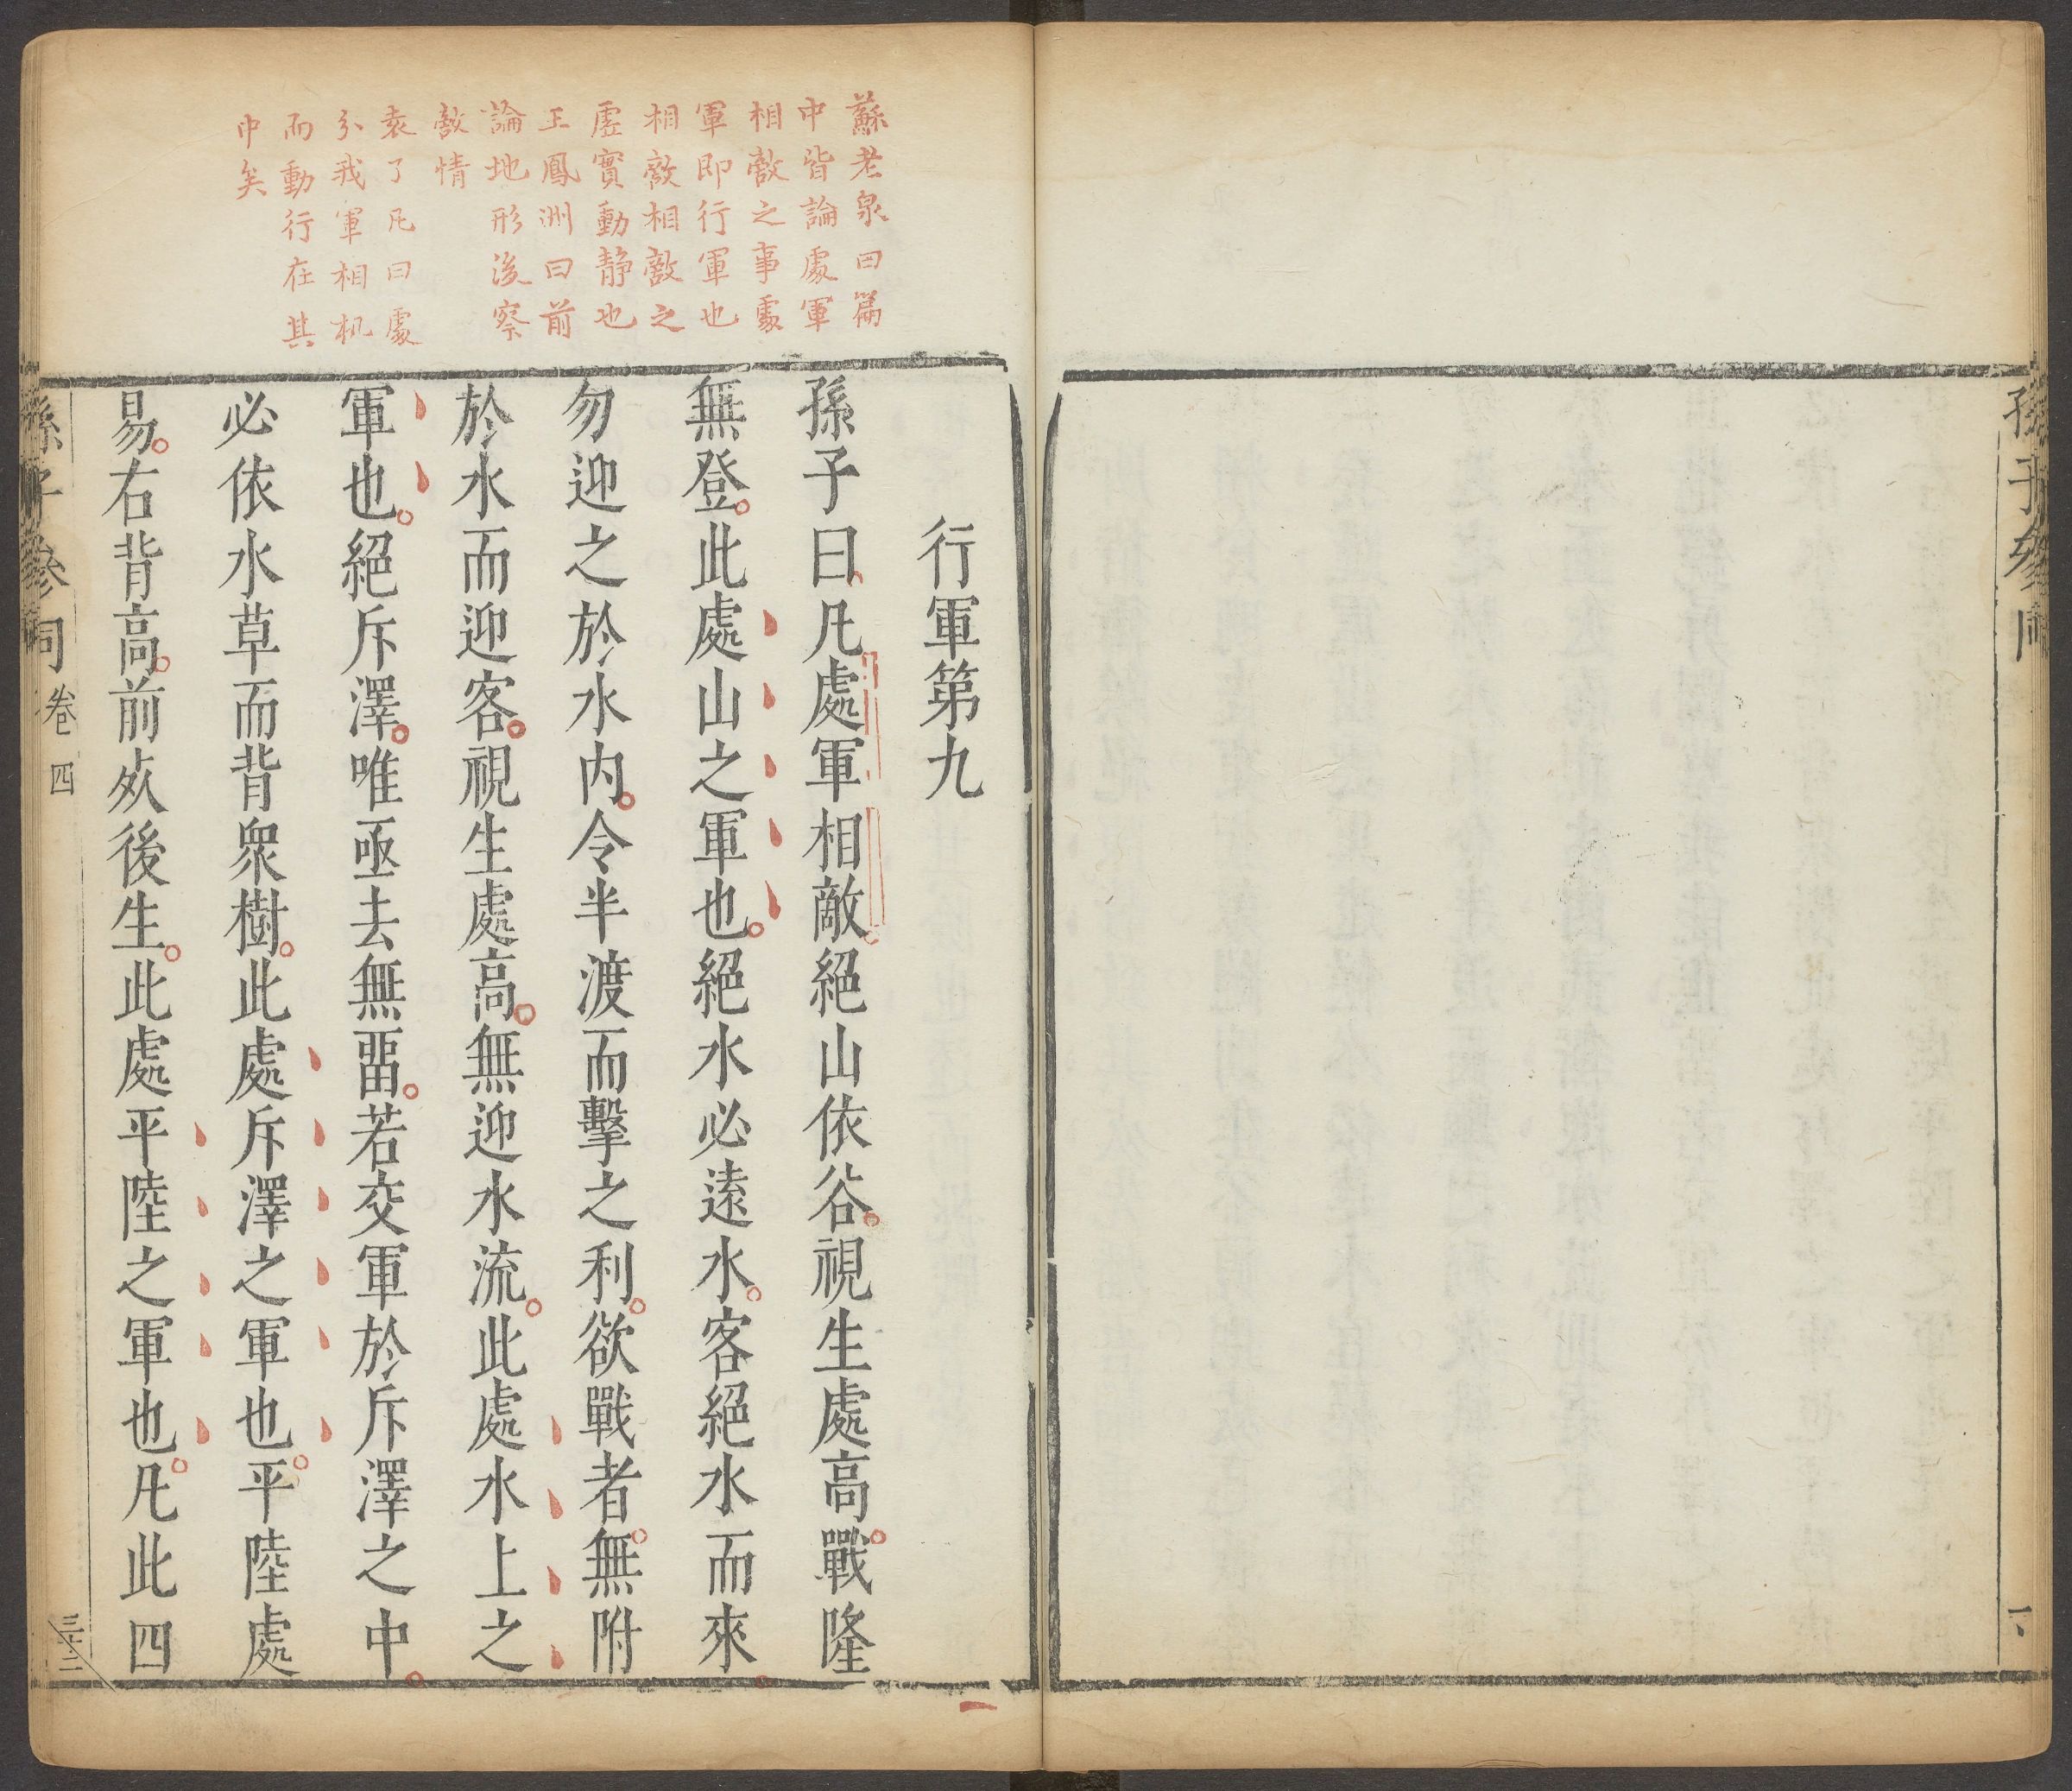 孫子參同
蘇老泉曰篇
中皆論處軍
相敵之事處
軍即行軍也
相敵相敵之
虛實動静也
王鳳洲曰前
論地形後察
敵情
袁了凡曰處
分我軍相机
而動行在其
中矣
行軍第九
孫子曰凡處軍相敵絕山依谷視生處高戰隆
無登此處山之軍也絕水必遠水客絕水而來
勿迎之於水内令半渡而擊之利欲戰者無附
於水而迎客視生處高無迎水流此處水上之
軍也絕斥澤唯亟去無畱若交軍於斥澤之中
必依水草而背衆樹此處斥澤之軍也平陸處
易右背高前死後生此處平陸之軍也凡此四
孫子參同 卷四 三十二